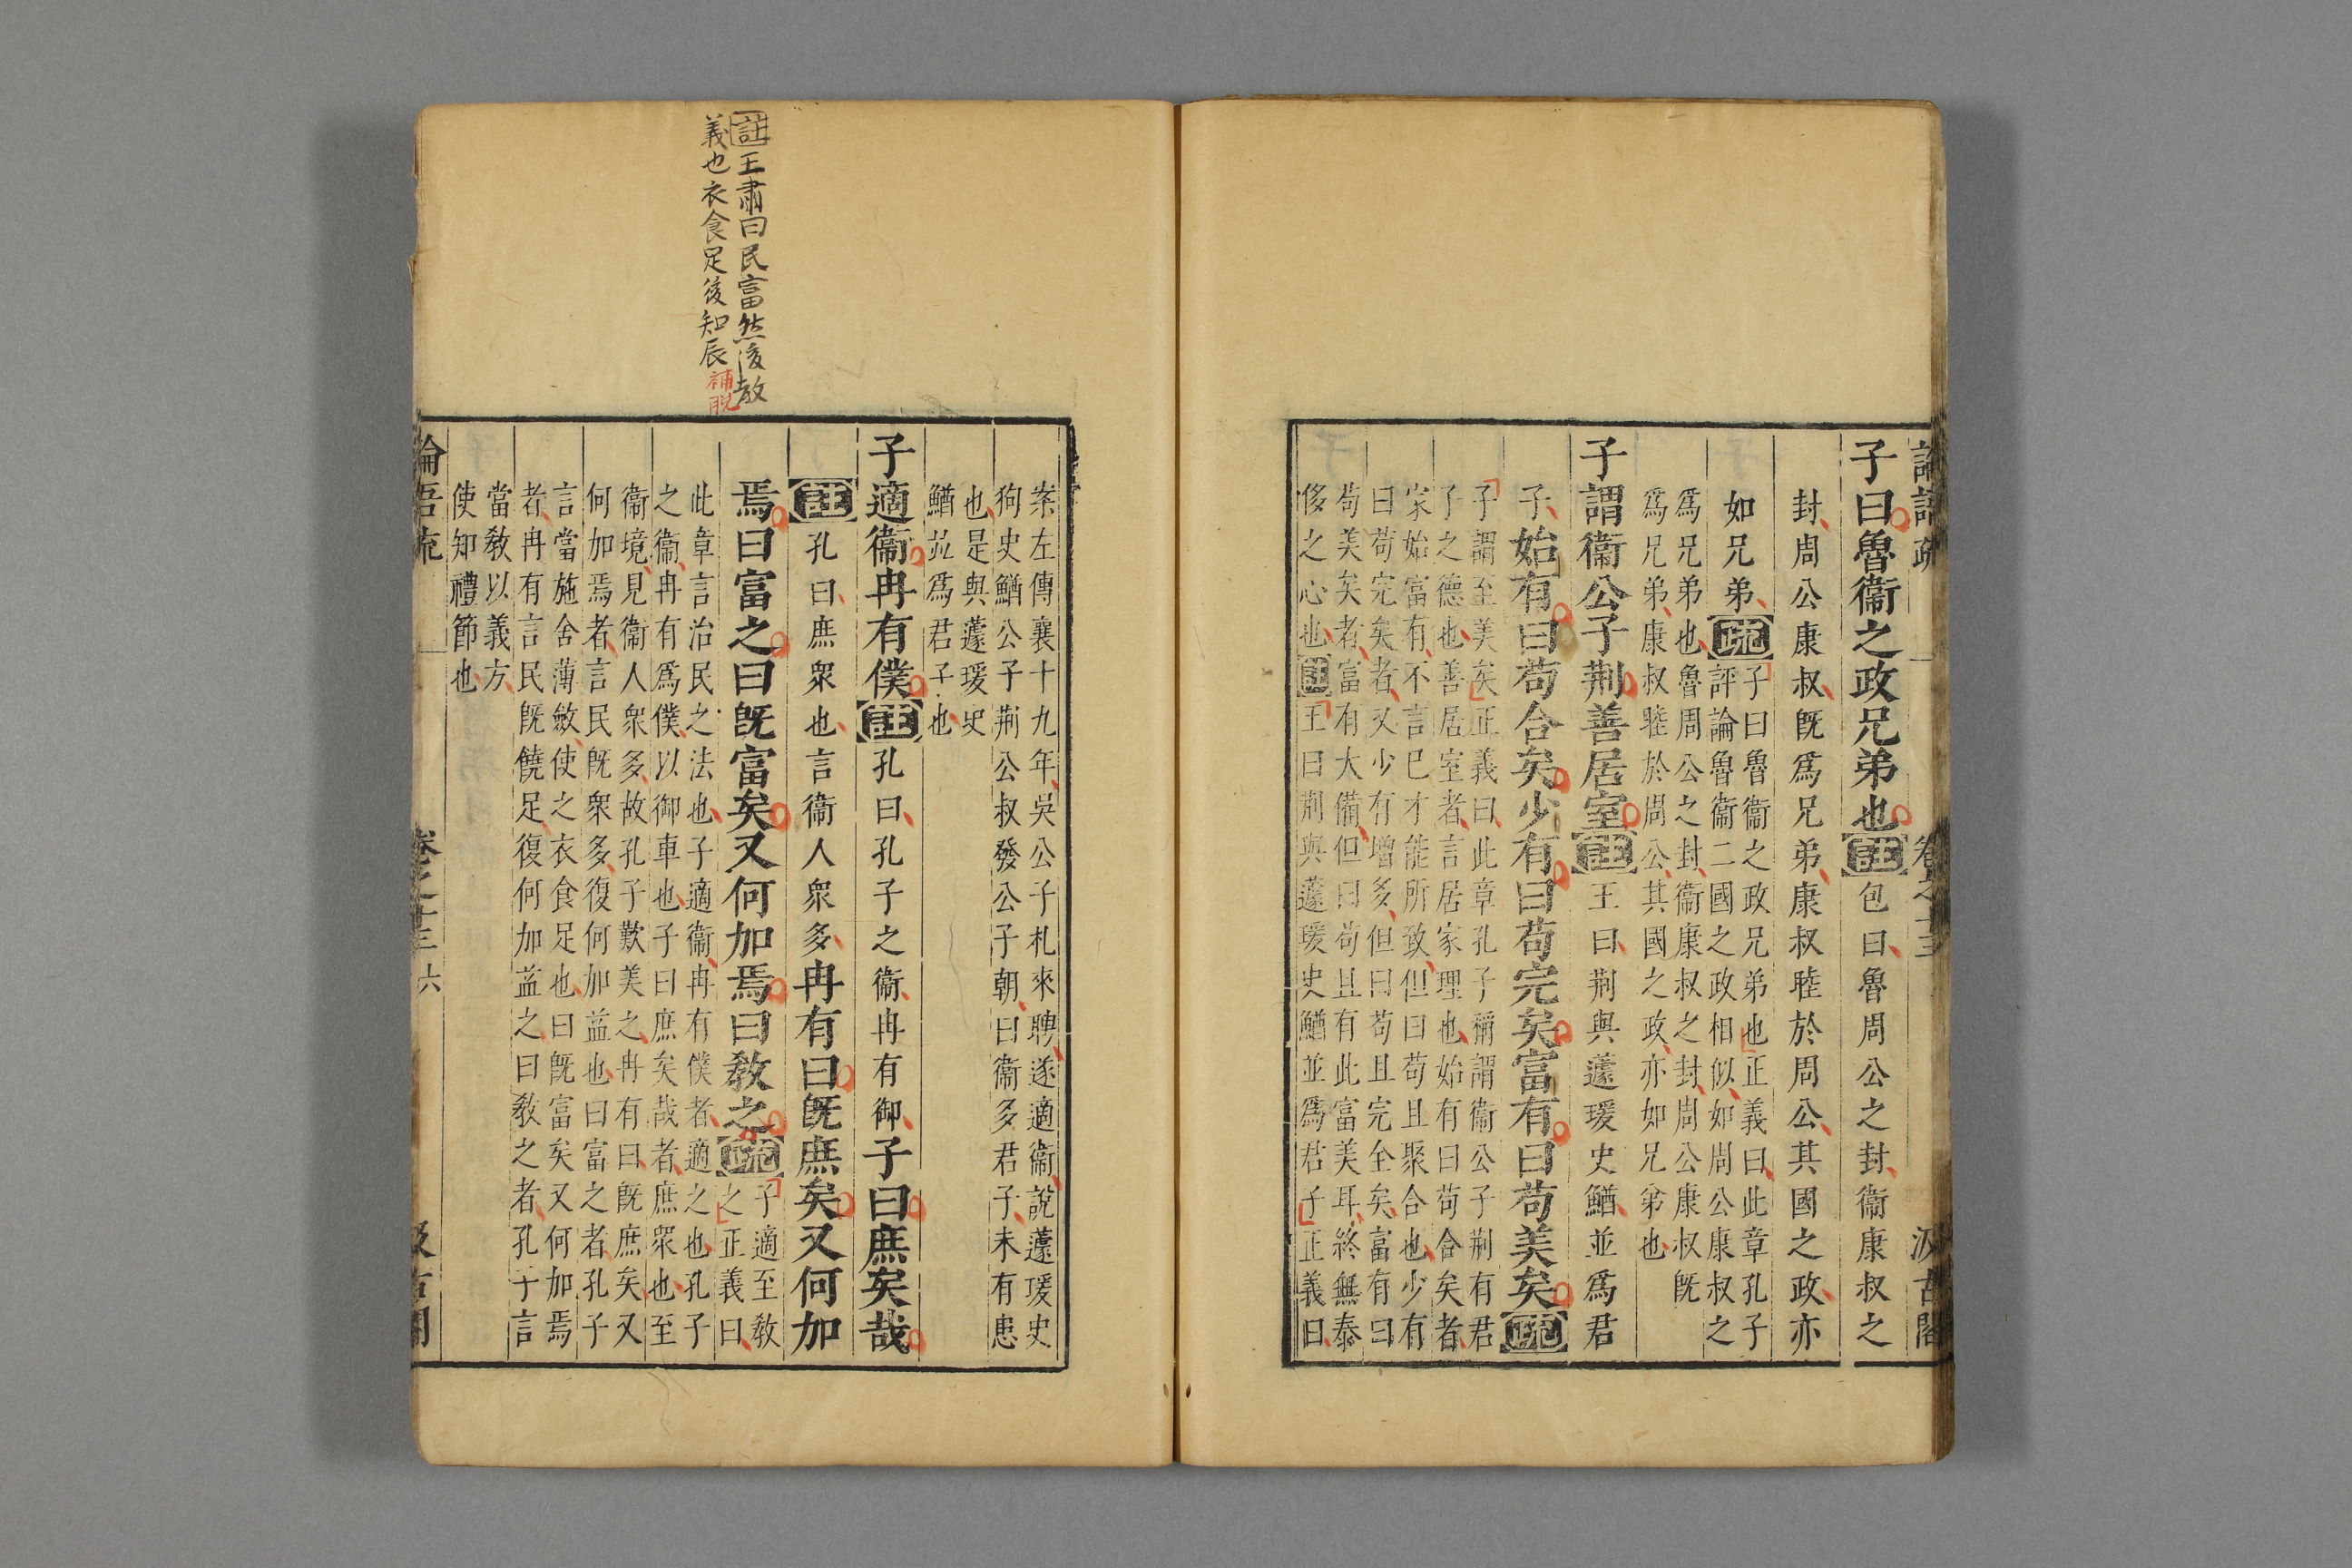 論語疏 卷之十三 汲古閣
子曰魯衞之政兄弟也註包曰魯周公之封衞康叔之
封周公康叔旣爲兄弟康叔睦於周公其國之政亦
如兄弟疏
子曰魯衞之政兄弟也正義曰此章孔子
評論魯衞二國之政相似如周公康叔之
爲兄弟也魯周公之封衞康叔之封周公康叔旣
爲兄弟康叔睦於周公其國之政亦如兄弟也
子謂衞公子荆善居室註王曰荆與蘧瑗史鰌並爲君
子始有曰苟合矣少有曰苟完矣富有曰苟美矣疏
子謂至美矣正義曰此章孔子稱謂衞公子荆有君
子之德也善居室者言居家理也始有曰苟合矣者
家始富有不言已才能所致但曰苟且聚合也少有
曰苟完矣者又少有增多但曰苟且完全矣富有曰
苟美矣者富有大備但曰苟且有此富美耳終無泰
侈之心也註王曰荆與蘧瑗史鰌並爲君子正義曰
案左傳襄十九年吳公子札來聘遂適衞說蘧瑗史
狗史鰌公子荆公叔發公子朝曰衞多君子未有患
也是與蘧瑗史
鰌並爲君子也
子適衞冉有僕註孔曰孔子之衞冉有御子曰庶矣哉
註孔曰庶衆也言衞人衆多冉有曰旣庶矣又何加
焉曰富之曰旣富矣又何加焉曰敎之疏
子適至敎
之正義曰
此章言治民之法也子適衞冉有僕者適之也孔子
之衞冉有爲僕以御車也子曰庶矣哉者庶衆也至
衞境見衞人衆多故孔子歎美之冉有曰旣庶矣又
何加焉者言民旣衆多復何加益也曰富之者孔子
言當施舍薄斂使之衣食足也曰旣富矣又何加焉
者冉有言民旣饒足復何加益之曰敎之者孔子言
當敎以義方
使知禮節也
論語疏 卷之十三 六 汲古閣
註王肅曰民富然後教
義也衣食足後知辰
補脫